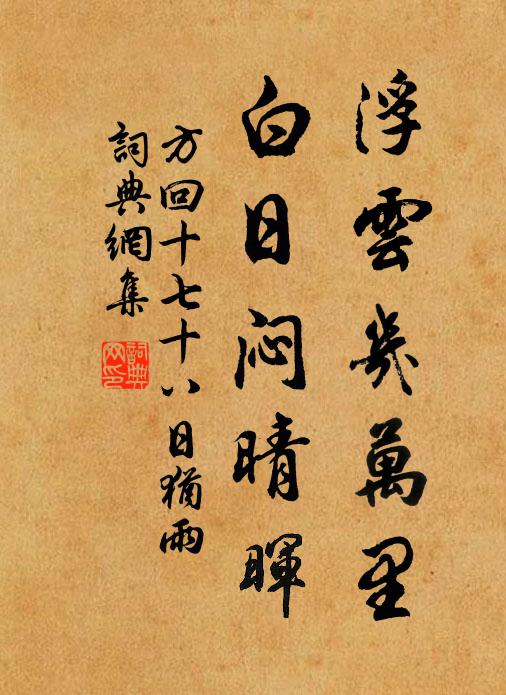 浮雲幾萬里
白日悶晴暉
方回十七十八日猶雨
詞典網集
詞典網印